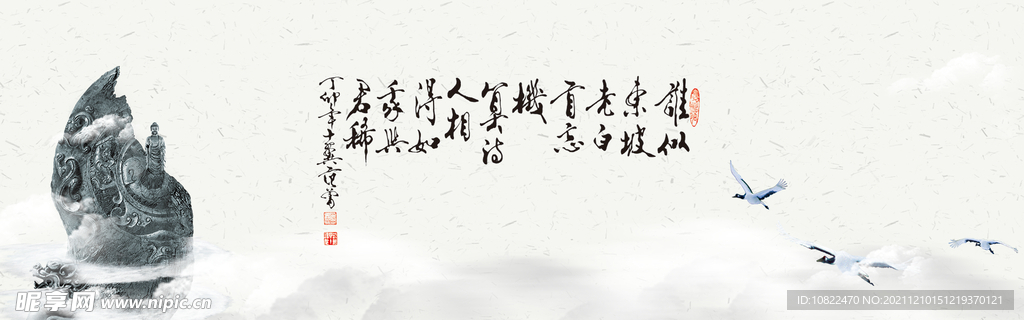 雖似
東坡
老白
首忘
機
冥詩
人相
得如
我與
君稀
丁卯年十翼范曾
昵享网 www.nipic.cn
ID:10822470 NO:20211210151219370121